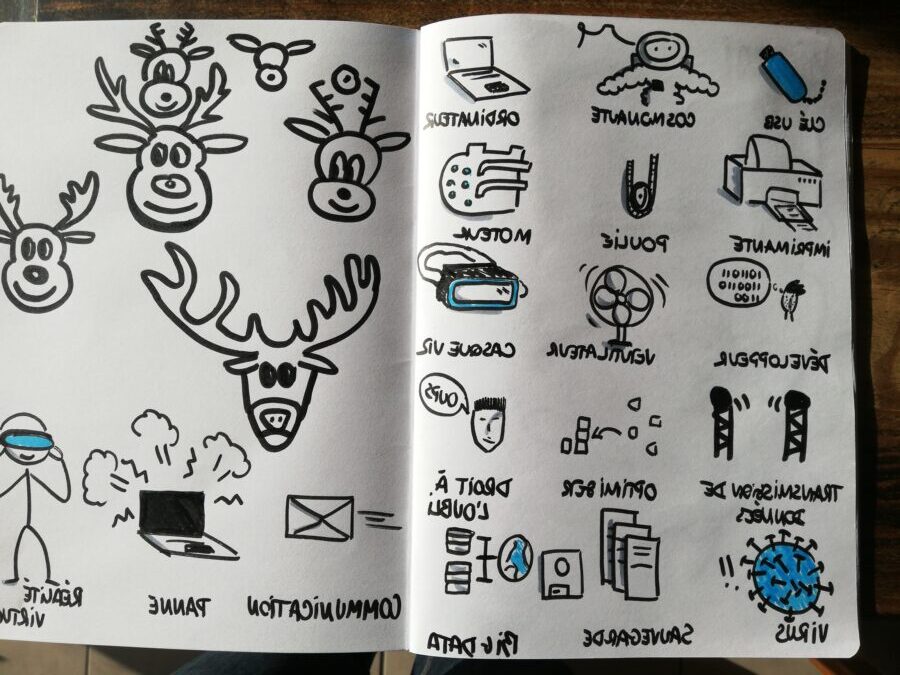 CLÉ USB
COSMONAUTE
ORDINATEUR
IMPRIMANTE
POULIE
MOTEUR
DÉVELOPPEUR
VENTILATEUR
CASQUE VR
OUPS
TRANSMISSION DE
DONNÉES
OPTIMISER
DROIT À
L'OUBLI
!!
VIRUS
SAUVEGARDE
BIG DATA
COMMUNICATION
PANNE
RÉALITÉ
VIRTU